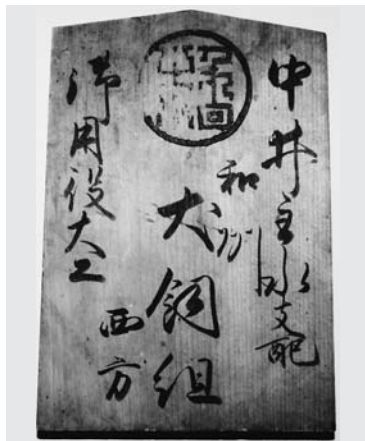 中井主水支配
和州
犬飼組
西方
御用役大工